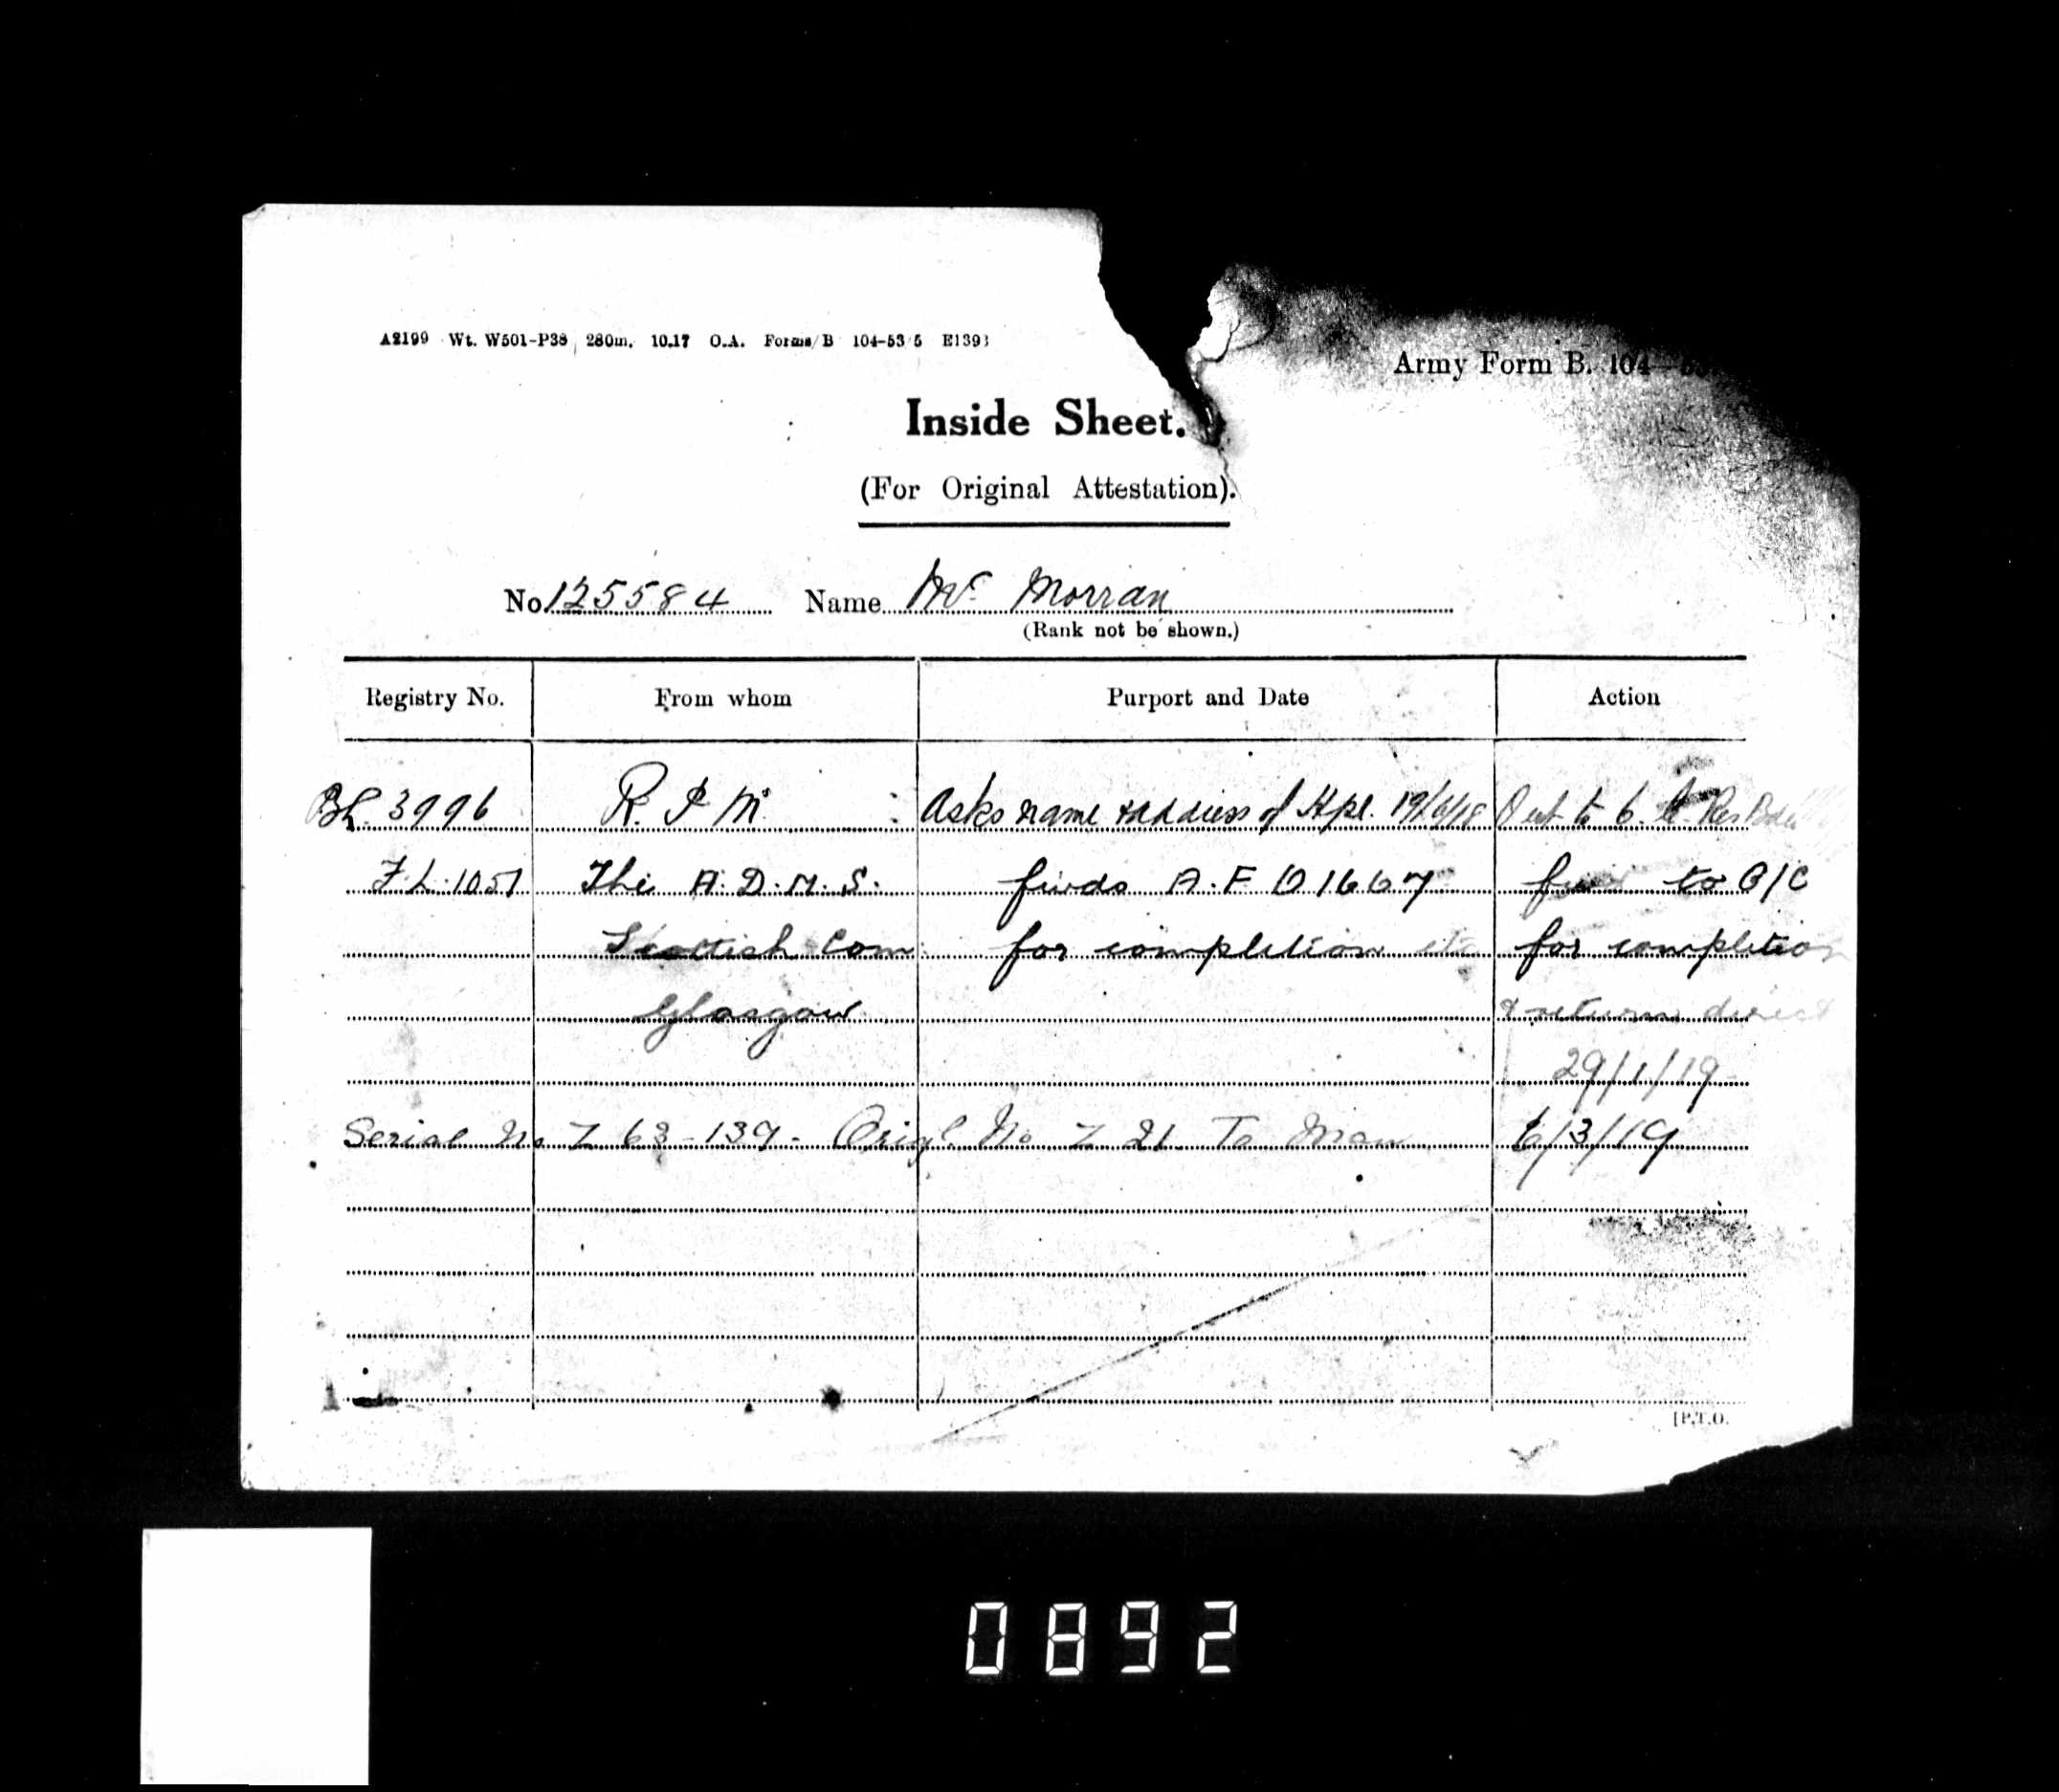 A2199 Wt. W501-P38 280m. 10.17 O.A. Forms/B 104-53/5 E1393
Army Form B. 104—
Inside Sheet.
(For Original Attestation).
No 125584 Name Mc Morran
(Rank not be shown.)
Registry No. From whom Purport and Date Action
3996 R. P M. Asks name & address of Hpl. 19/6/18 to 6.
F.L. 1051 The A.D.M.S. fwds A.F. O 1667 to O/C
Scottish Com for completion for completion
Glasgow & return direct
29/1/19
Serial No Z 63-139 - Origl. No Z 21 To Man 6/3/19
[P.T.O.
0892